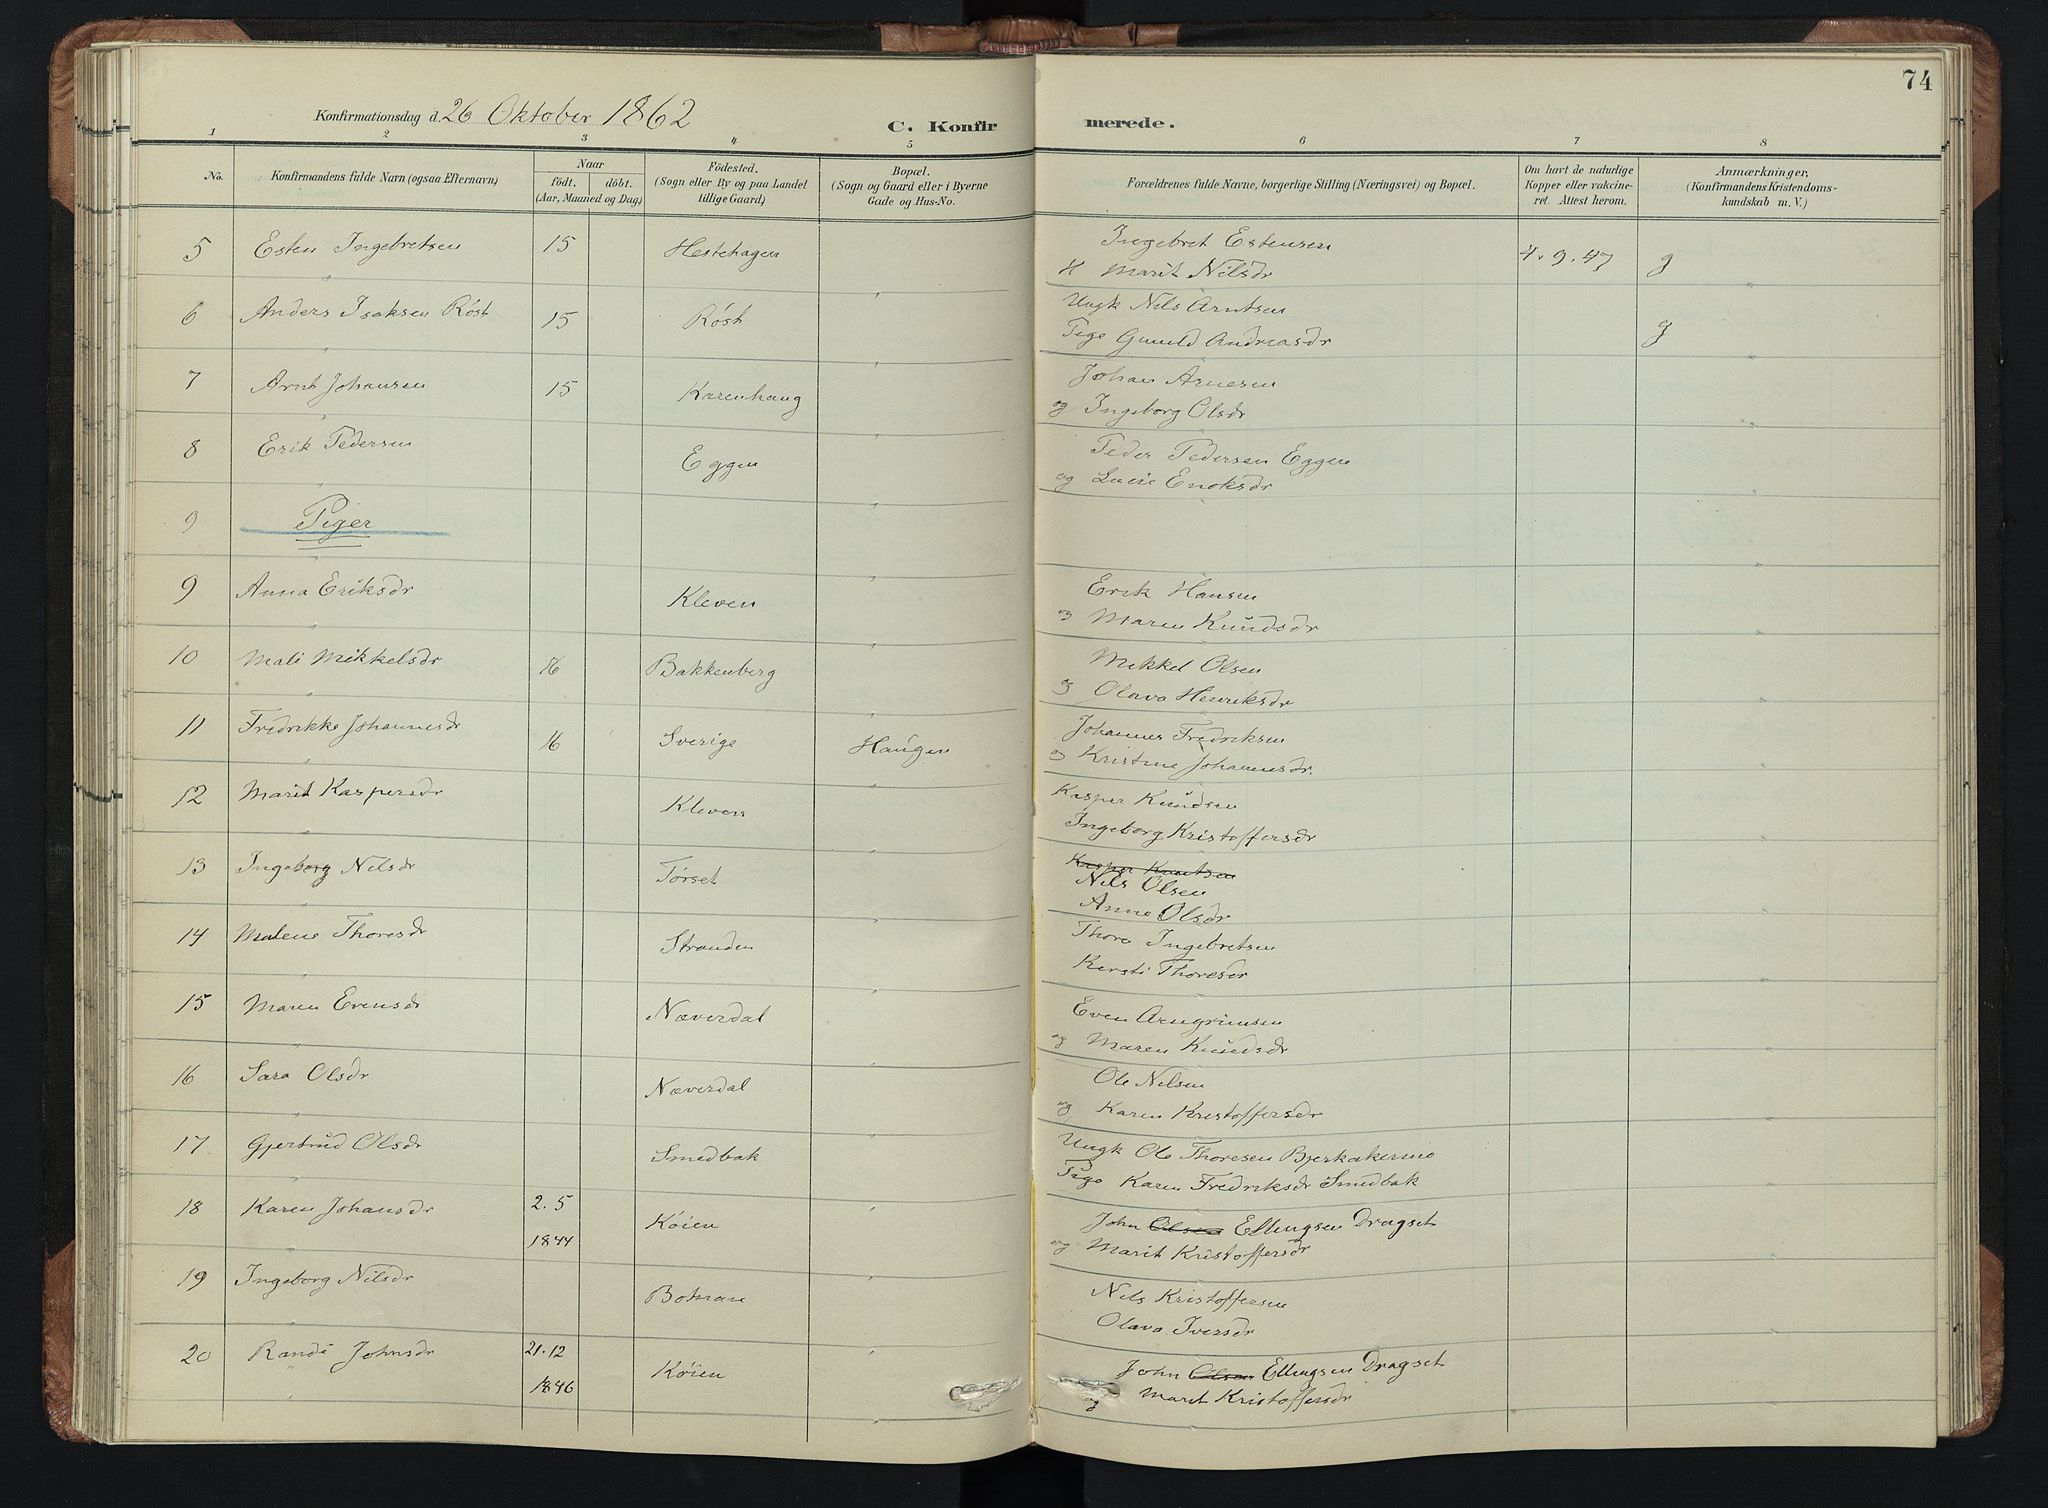 74
Konfirmationsdag d. 26 Oktober 1862
C. Konfirmerede.
1 2 3 4 5 6 7 8
No. Konfirmandens fulde Navn (ogsaa Efternavn) Naar født. døbt. (Aar, Maaned og Dag) Fødested. (Sogn eller By og paa Landet tillige Gaard) Bopæl. (Sogn og Gaard eller i Byerne Gade og Hus-No. Forældrenes fulde Navne, borgerlige Stilling (Næringsvei) og Bopæl. Om havt de naturlige Kopper eller vakcineret. Attest herom. Anmærkninger, (Konfirmandens Kristendomskundskab m. V.)
5 Esten Ingebretsen 15 Hestehagen Ingebret Estensen 4.9.47 g
Marit Nilsdr
6 Anders Isaksen Röst 15 Röst Ungk Nils Arntsen
Pige Gunild Andreasdr g
7 Arnt Johansen 15 Karenhaug Johan Arnesen
og Ingeborg Olsdr
8 Erik Pedersen Eggen Peder Pedersen Eggen
og Enoksdr
9 Piger
9 Anna Eriksdr Kleven Erik Hansen
og Maren Knudsdr
10 Mali Mikkelsdr 16 Bakkenberg Mikkel Olsen
og Olava Henriksdr
11 Fredrikke Johannesdr 16 Sverige Haugen Johannes Fredriksen
og Kristine Johannesdr.
12 Marit Kaspersdr Kleven Kasper Knudsen
Ingeborg Kristoffersdr
13 Ingeborg Nilsdr Törset Kasper Knutsen
Nils Olsen
Anne Olsdr
14 Malene Thoresdr Stranden Thore Ingebretsen
Kersti Thoresdr
15 Maren Evensdr Næverdal Even Arngrimsen
og Maren Knudsdr
16 Sara Olsdr Næverdal Ole Nilsen
og Karen Kristoffersdr
17 Gjertrud Olsdr Smedbak Ungk Ole Thoresen Bjerkakermo
Pige Karen Fredriksdr Smedbak
18 Karen Johansdr 2.5 1844 Köien John Olsen Ellingsen Dragset
og Marit Kristoffersdr
19 Ingeborg Nilsdr Nils Kristoffersen
Olava Iversdr
20 Randi Johnsdr 21.12 1846 Köien John Olsen Ellingsen Dragset
og Marit Kristoffersdr